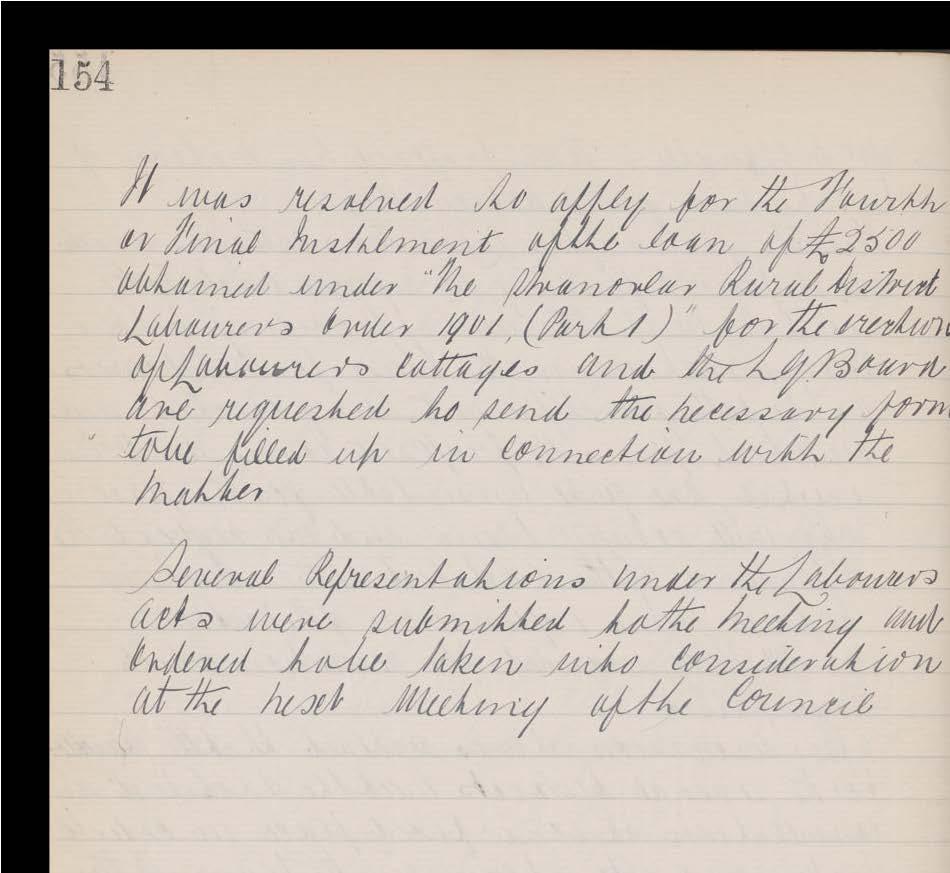 154
It was resolved to apply for the Fourth
or Final Instalment of the loan of £2500
obtained under "The Stranorlar Rural District
Labourers Order 1901, (Part 1)" for the erection
of Labourers Cottages and the L G. Board
are requested to send the necessary form
to be filled up in connection with the
Matter
Several Representations under the Labourers
Acts were submitted to the Meeting and
Ordered to be taken into consideration
at the next Meeting of the Council